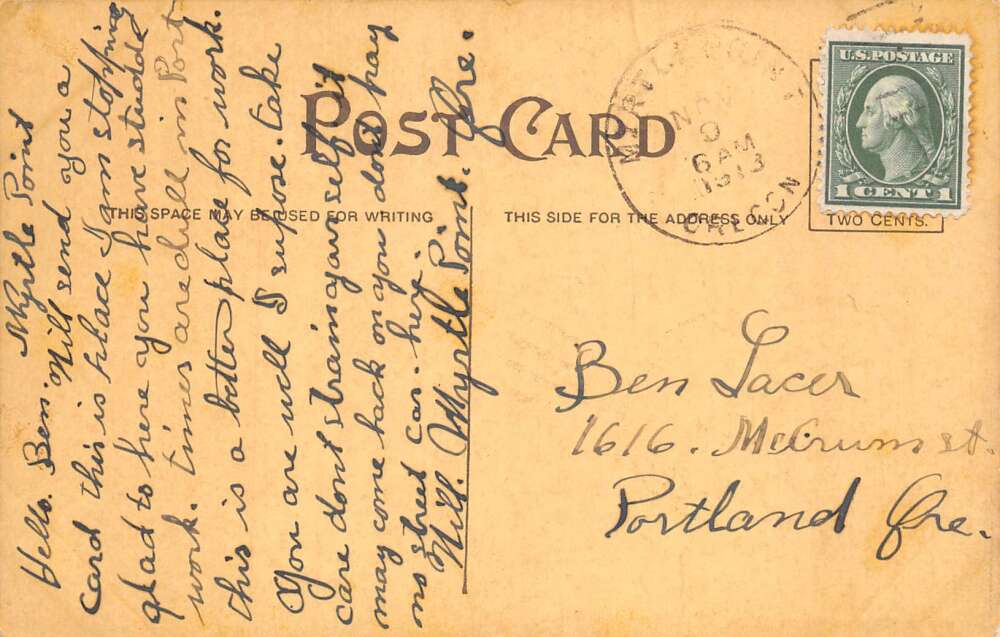 Myrtle Point
Hello. Ben Will send you a
card this is place I am stopping
glad to here you have studdd
work. times are dull in Port
this is a better place for work.
You are well I supose. take
care dont strain yourself it
may come back on you dont pay
no street car. here.
Will. Myrtle Point. Ore.
POST CARD
THIS SPACE MAY BE USED FOR WRITING
THIS SIDE FOR THE ADDRESS ONLY
MYRTLE POINT
NOV
6 AM
1913
OREGON
U.S. POSTAGE
1 CENT 1
TWO CENTS.
Ben Lacer
1616. McCrum st.
Portland Ore.